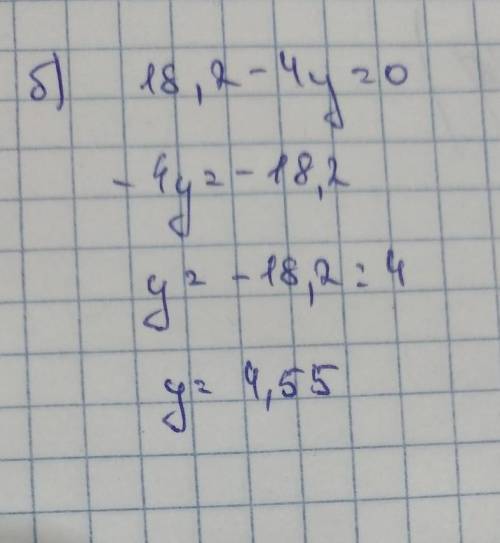 б) 18,2 - 4y = 0
- 4y = - 18,2
y = - 18,2 : 4
y = 4,55